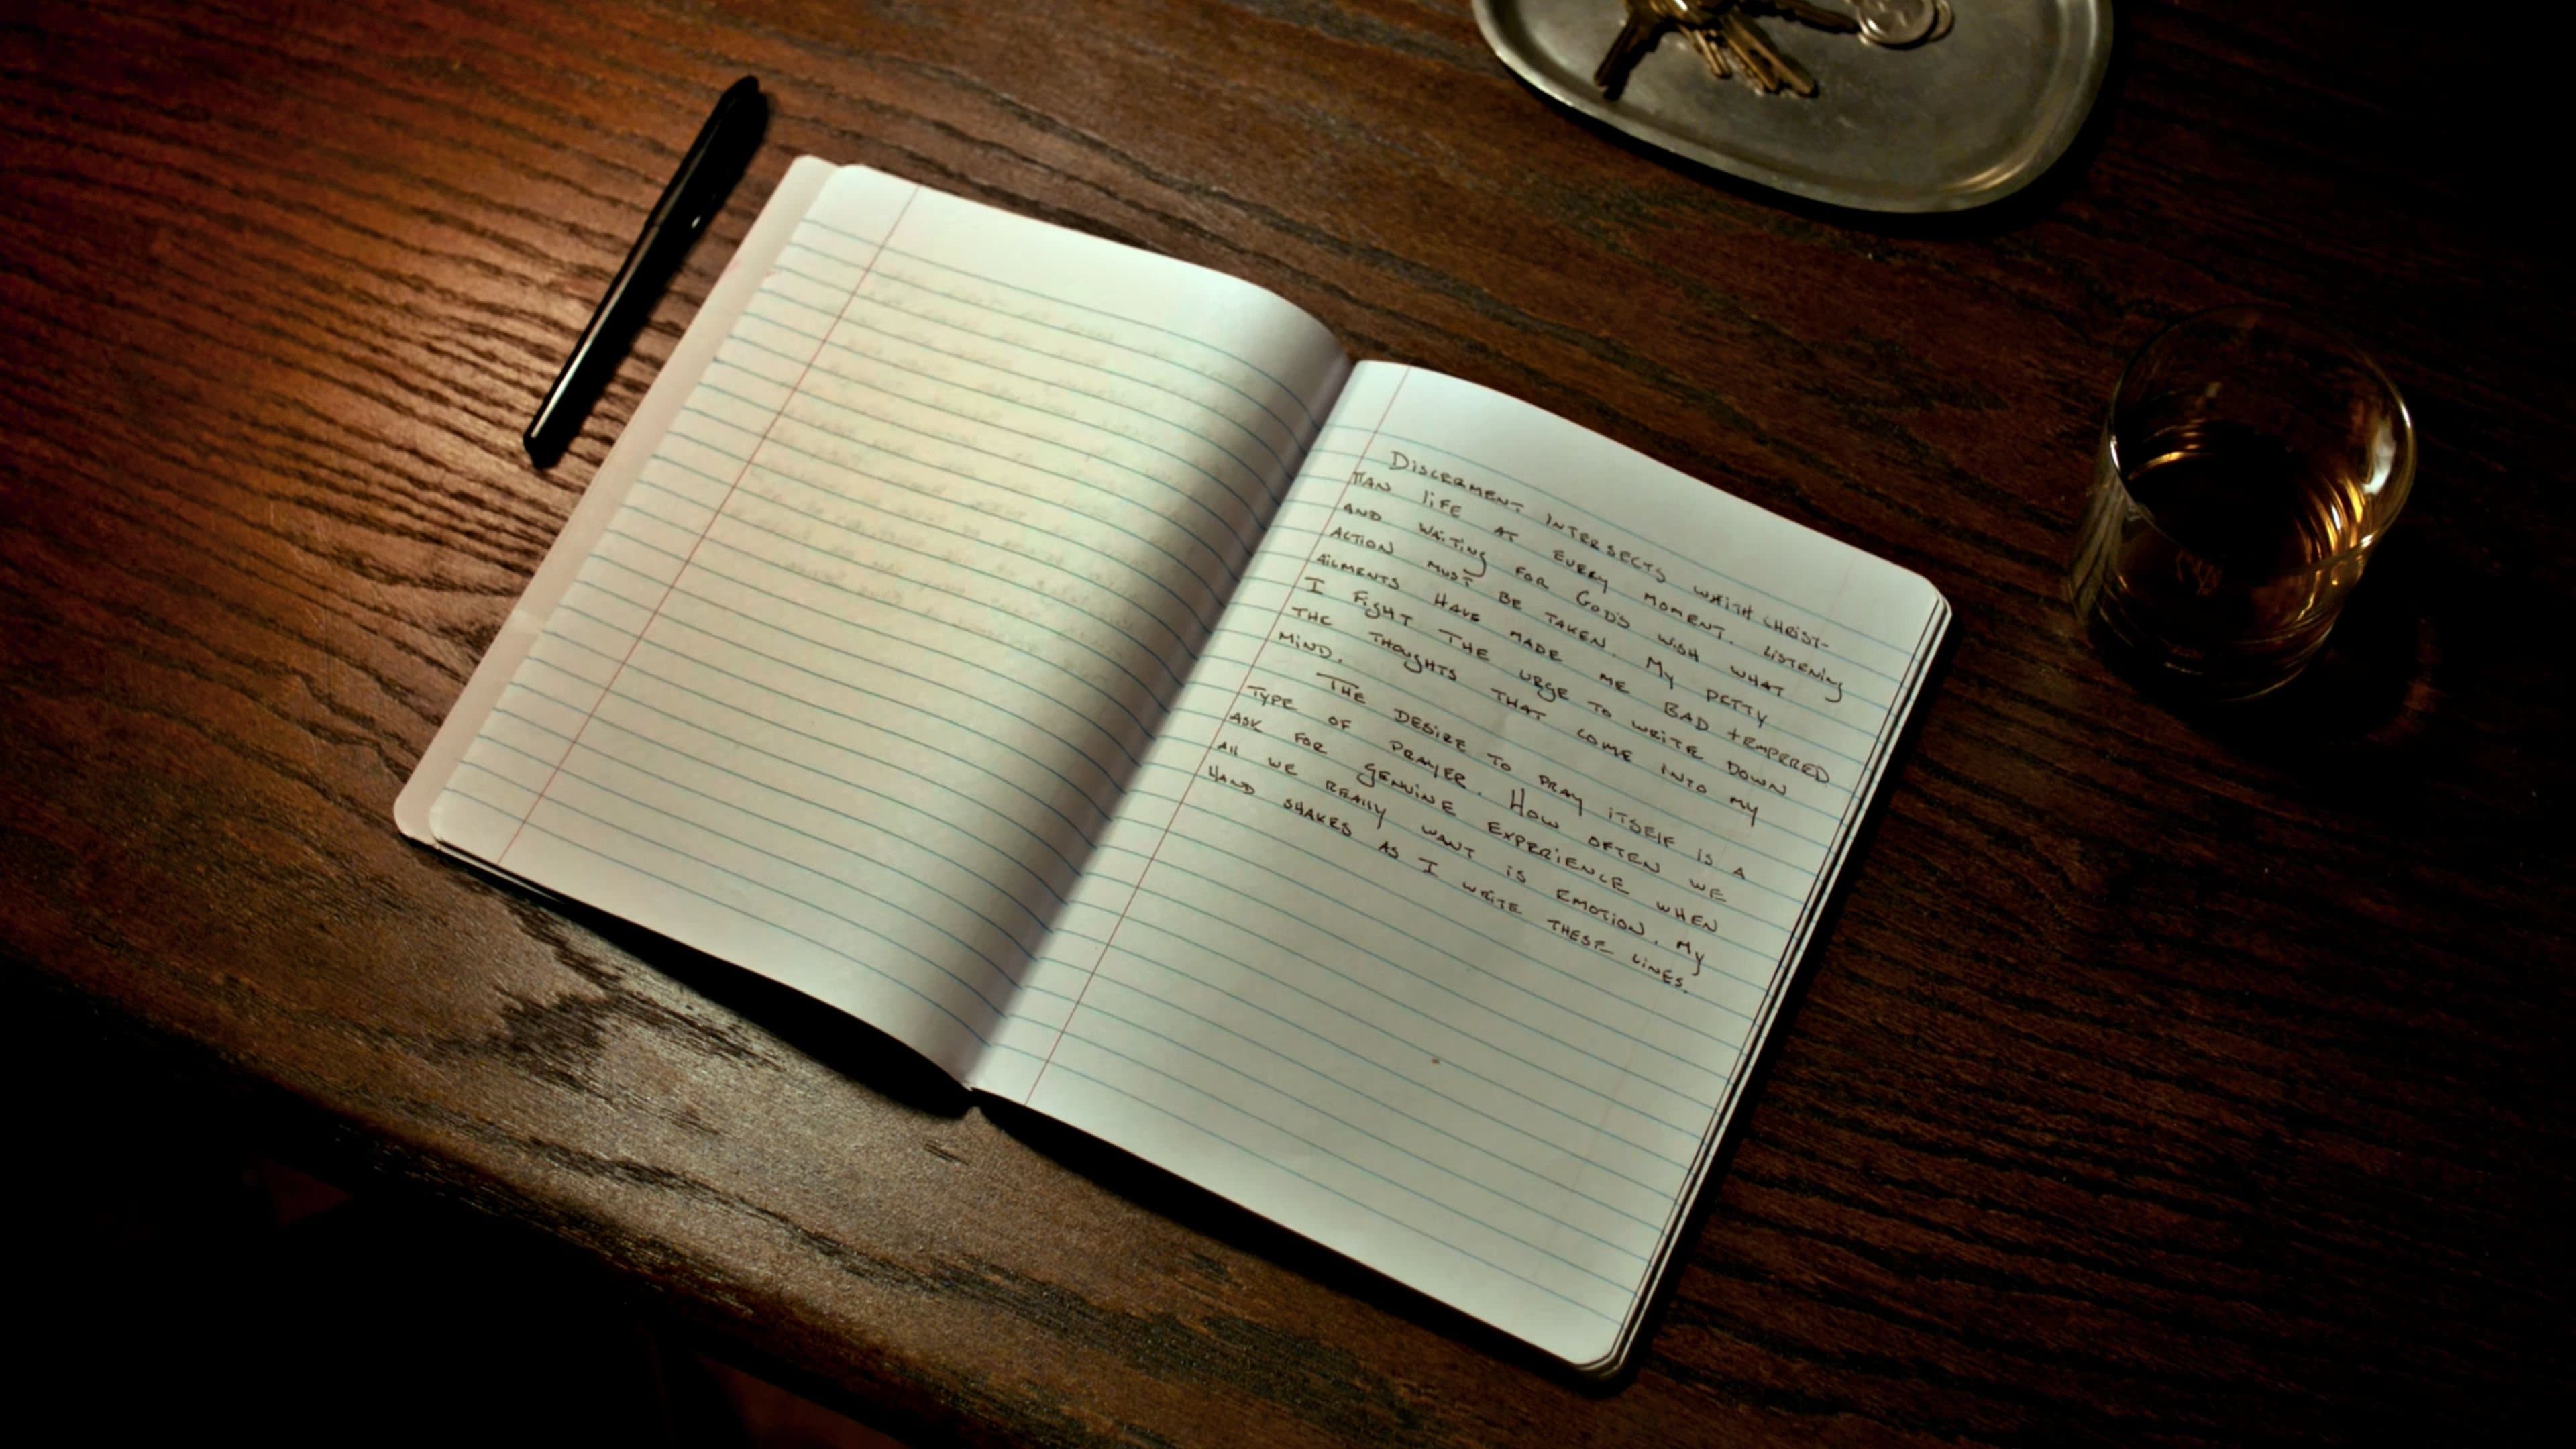 DISCERMENT INTERSECTS WHITH CHRIST-
TIAN LIFE AT EVERY MOMENT. LISTENING
AND WAITING FOR GOD'S WISH WHAT
ACTION MUST BE TAKEN. MY PETTY
AILMENTS HAVE MADE ME BAD TEMPERED
I FIGHT THE URGE TO WRITE DOWN
THE THOUGHTS THAT COME INTO MY
MIND. THE DESIRE TO PRAY ITSELF IS A
TYPE OF PRAYER. HOW OFTEN WE
ASK FOR GENUINE EXPERIENCE WHEN
All WE REAlly WANT IS EMOTION. MY
HAND SHAKES AS I WRITE THESE LINES.